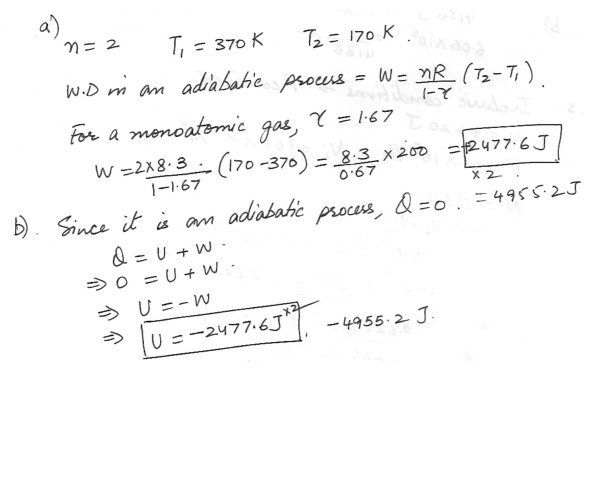 a) n = 2 T₁ = 370 K T₂ = 170 K.
W.D in an adiabatic process = W = nR/(1-γ) (T₂-T₁).
For a monoatomic gas, γ = 1.67
W = 2×8.3/(1-1.67) (170-370) = 8.3/0.67 × 200 = 2477.6 J
×2.
= 4955.2 J
b). Since it is an adiabatic process, Q = 0.
Q = U + W.
⇒ 0 = U + W.
⇒ U = -W
⇒ U = -2477.6 J ×2. -4955.2 J.